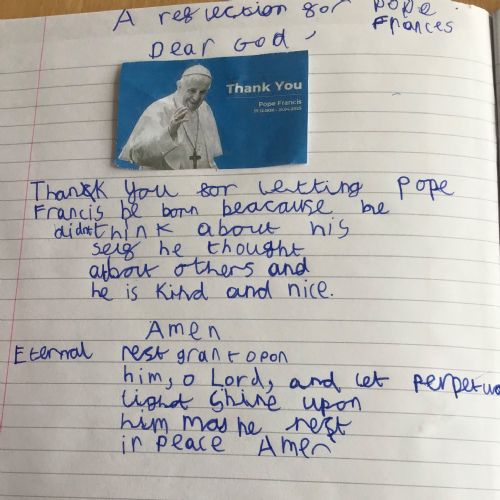 A reflection for Pope
Frances
Dear God,
Thank You
Pope Francis
17.12.1936 - 21.04.2025
Thank You for letting Pope
Francis be born beacause he
didn't think about his
self he thought
about others and
he is Kind and nice.
Amen
Eternal rest grant opon
him, o Lord, and let perpetua
light Shine upon
him may he rest
in peace Amen